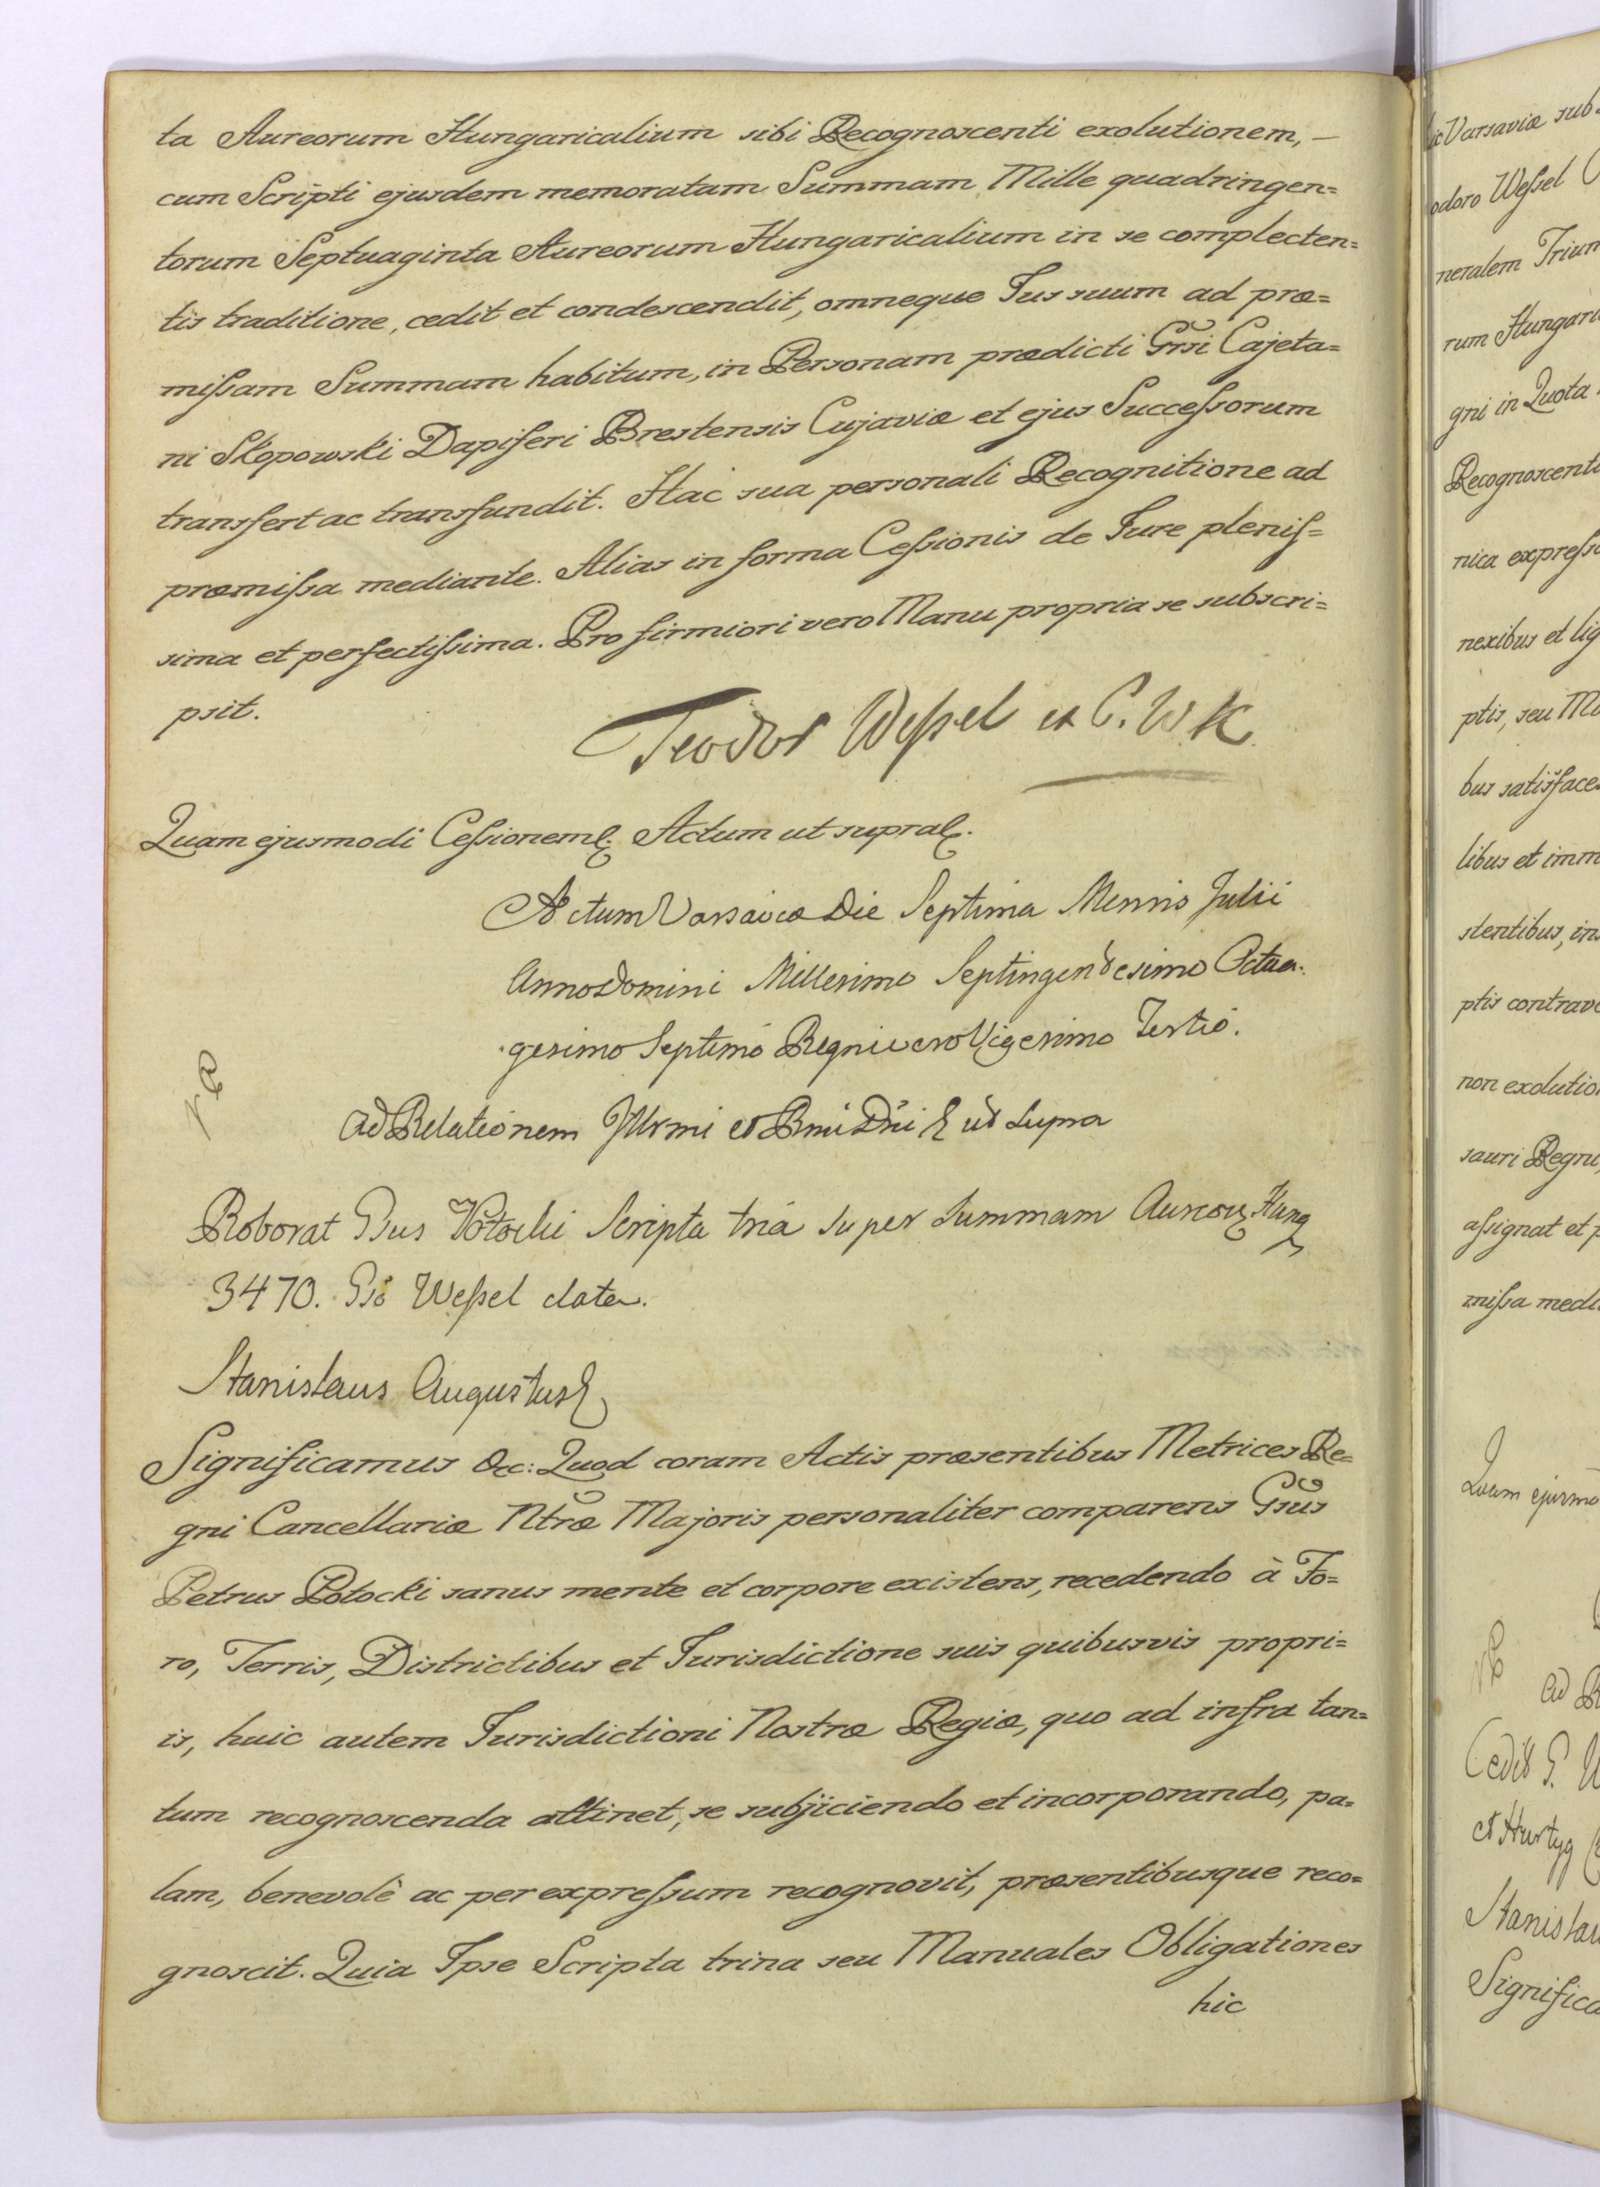 ta Aureorum Hungaricalium sibi Recognoscenti exolutionem, —
cum Scripti ejusdem memoratam Summam Mille quadringen=
torum Septuaginta Aureorum Hungaricalium in se complecten=
tis traditione, cedit et condescendit, omneque Jus suum ad præ=
missam Summam habitum, in Personam prædicti Grsi Cajeta=
ni Skopowski Dapiferi Brestensis Cujaviæ et ejus Successorum
transfert ac transfundit. Hac sua personali Recognitione ad
præmissa mediante. Alias in forma Cessionis de Jure plenis=
sima et perfectissima. Pro firmiori vero Manu propria se subscri=
psit.
Teodor Wessel
Quam ejusmodi Cessionem Actum ut supra
Actum Varsaviæ Die Septima Mensis Julii
Anno Domini Millesimo Septingentesimo Octua-
gesimo Septimo Regni vero Vigesimo Tertio.
Ad Relationem Illrmi et Rmi Dni ut Supra
Roborat Gsus Potocki Scripta tria super Summam Aureor Hung
3470. Gso Wessel data.
Stanislaus Augustus
Significamus &c: Quod coram Actis præsentibus Metrices Re=
gni Cancellariæ Ntræ Majoris personaliter comparens Gsus
Petrus Potocki sanus mente et corpore existens, recedendo à Fo=
ro, Terris, Districtibus et Jurisdictione suis quibusvis propri=
is, huic autem Jurisdictioni Nostræ Regiæ, quo ad infra tan=
tum recognoscenda attinet, se subjiciendo et incorporando, pa=
lam, benevolè ac per expressum recognovit, præsentibusque reco=
gnoscit. Quia Ipse Scripta trina seu Manuales Obligationes
hic
Varsaviæ sub
odoro Wessel
neralem Trium
rum Hungari
gni in Quota
Recognoscenti
nica express
nexibus et lig
ptis, seu M
bus satisface
libus et imm
stentibus, in
ptis contrav
non exolutio
sauri Regni
assignat et p
missa medi
Quam ejusmo
Ad R
Cedit G. W
et Hurtyg
Stanislau
Significa